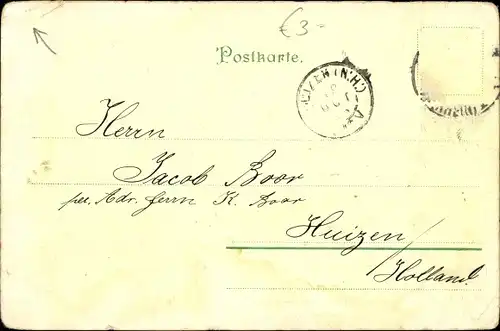 €3-
Postkarte.
HUIZEN (N.H.)
Herrn
Jacob Boor
per Adr. Herrn K. Boor
Huizen /
Holland.